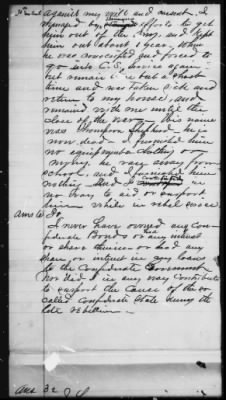 against my will and consent. I
managed by efforts to get
him out of the Army, and kept
him out about 1 year. When
he was conscripted and forced to
go into C.S. service again
but remained in but a short
time and was taken sick and
return to my house, and
remained with me until the
close of the war. His name
was Thompson Shepherd, he is
now dead. I furnished him
nor equipments
he ran away from
school, and I furnished him
nothing in
no way to aid or support
him while in rebel service
Ans to
I never have owned any Con-
federate Bonds or any interest
or share therein or had any
share or interest in any loans
to the Confederate Government
nor did I in any way contribute
to support the cause of the so
called Confederate State during the
late rebellion
Ans 32